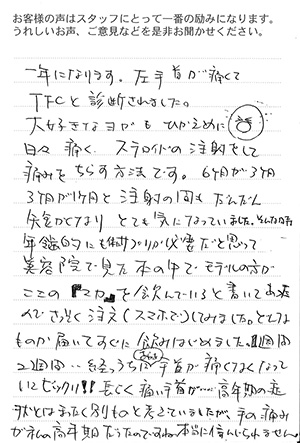 お客様の声はスタッフにとって一番の励みになります。
うれしいお声、ご意見などを是非お聞かせください。
一年になります。左手首が痛くて
TFCと診断されました。
大好きなヨガもひかえめに
日々痛く、ステロイドの注射をして
痛みをちらす方法です。6ヶ月が3ヶ月
3ヶ月が1ヶ月と注射の間もだんだん
短かくなりとても気になっていました。そんな時
年齢的にも必要だと思って
美容院で見た本の中でモデルの方が
ここの『マカ』を飲んでいると書いてあった
のでさっそく注文(スマホで)してみました。とどき
ものが届いてすぐに飲みはじめました。1週間
2週間…経つうちに手首が痛くなくなって
いてビックリ!!長らく痛い手首が…更年期の症
状とはまったく別ものと考えていましたが、手の痛み
がその更年期だったのですね。本当に信じられません。